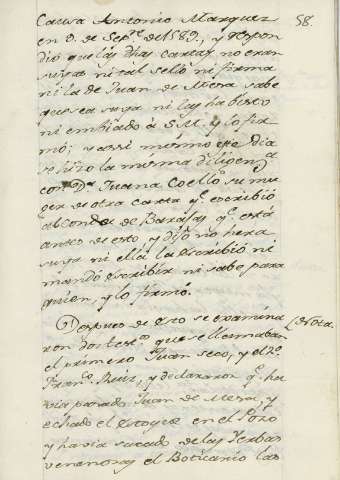 58.
Causa Antonio Marquez
en 9. de Septe. de 1589., y respon
dió que las dhas cartas no eran
suyas ni tal sello ni firma
ni la de Juan de Mesa sabe
que sea suya ni las ha visto
ni embiado á S.M. y lo fir
mó; y assi mismo este dia
se hizo la misma diligena.
con Da. Juana Coello su mu
ger de otra carta qe. escribió
al Conde de Barajas qe. está
antes de esto y dijo no hera
suya ni ella la escribió ni
mandó escribir ni sabe para
quien, y lo firmó.
Despues de esto se examina
(Nota.
ron dos testos. que se llamaban
el primero Juan seco, y el 2o.
Frano. Ruiz, y declararon qe. ha
via posado Juan de Mesa, y
echado el estoque en el Pozo
y havia sacado de las Yerbas
venenosas el Boticario las